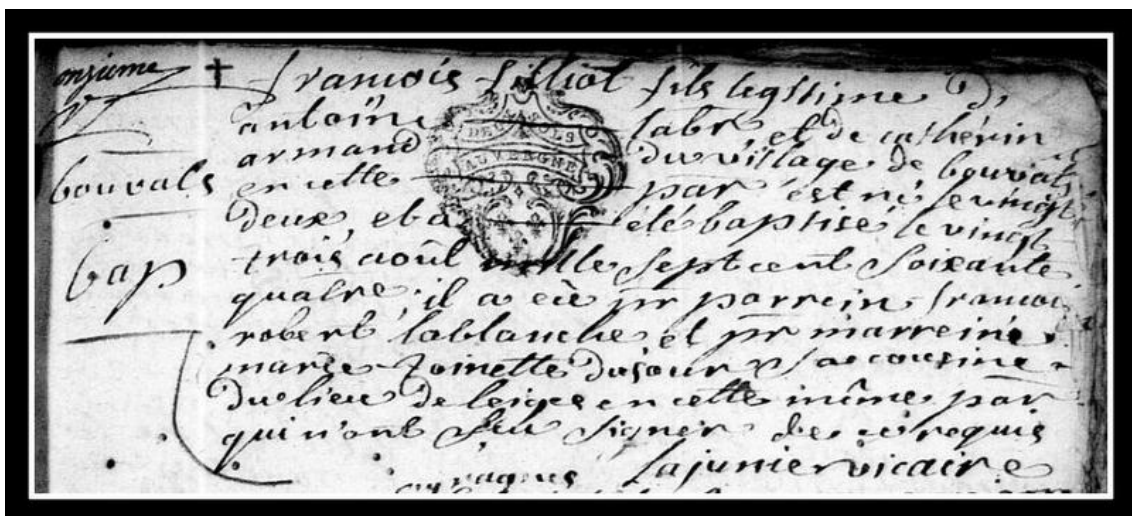 onzieme
françois filliol fils legitime d'
antoine labr et de catherin
armand du village de bouvals
bouvals
en cette par est né le vingt
deux et a été baptisé le vingt
bap
trois août mille sept cent soixante
quatre. il a eü pr parrein francoi
robert lablanche et pr marreine
marie toinette dufour sa cousine
du lieu de en cette même par
qui n'ont sçu signer de ce requis
lajunier vicaire
DE
AUVERGNE